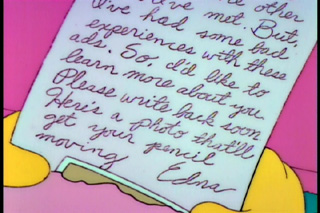 other
I've met. But,
I've had some bad
experiences with these
ads. So, I'd like to
learn more about you.
Please write back soon
Here's a photo that'll
get your pencil
moving
Edna